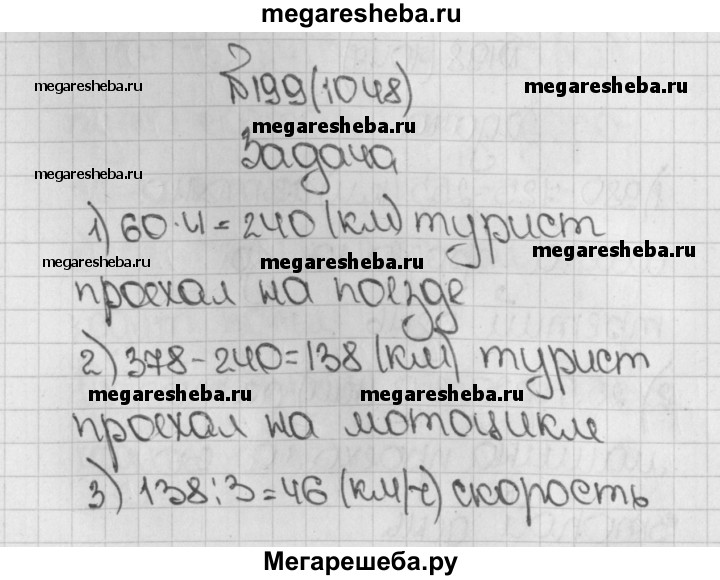 megaresheba.ru
megaresheba.ru
№199(1048)
megaresheba.ru
Задача
megaresheba.ru
1) 60·4=240 (км) турист
megaresheba.ru megaresheba.ru megaresheba.ru
проехал на поезде
2) 378-240=138 (км) турист
megaresheba.ru megaresheba.ru
проехал на мотоцикле
3) 138:3=46 (км/ч) скорость
megaresheba.ru megaresheba.ru
Мегарешеба.ру